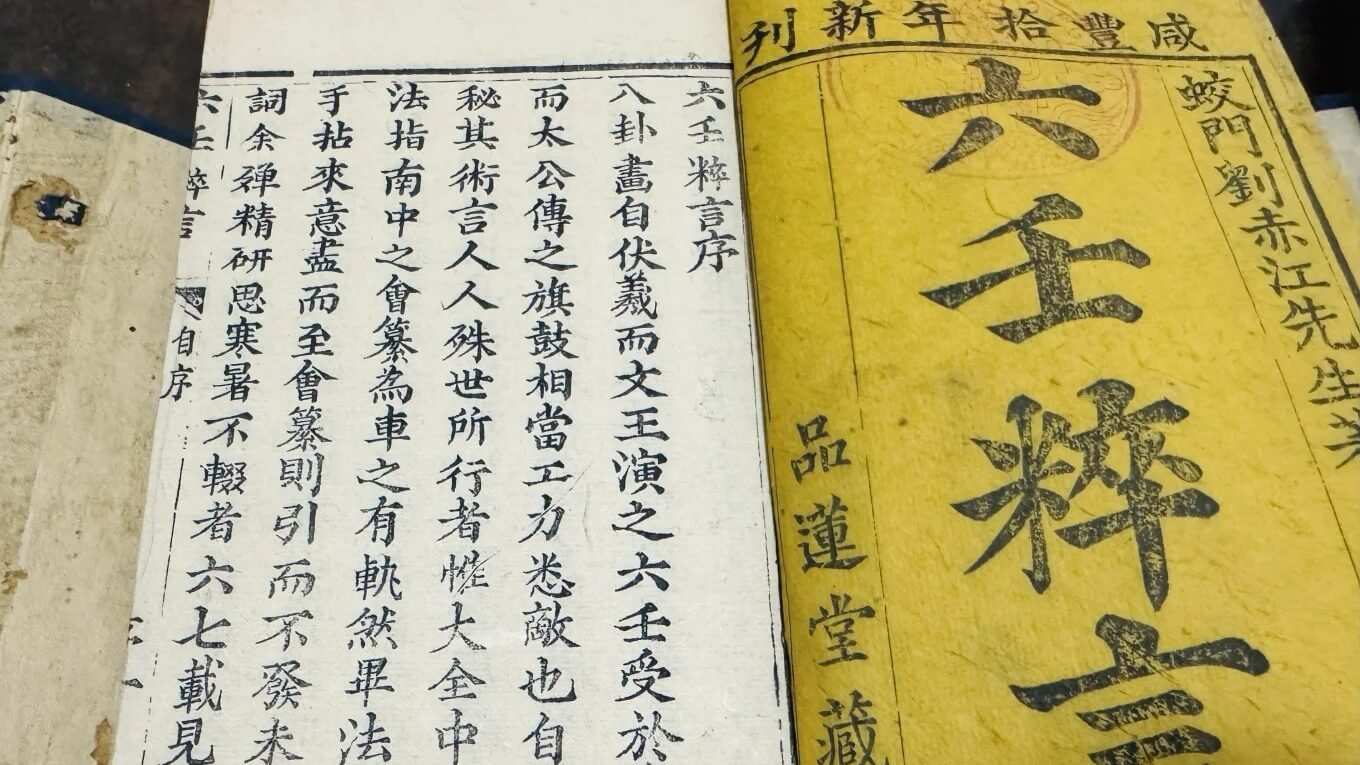 咸豐拾年新刊
蛟門劉赤江先生
六壬粹言
品蓮堂藏
六壬粹言序
八卦畫自伏羲而文王演之六壬受於
而太公傳之旗鼓相當工力悉敵也自
秘其術言人人殊世所行者惟大全中
法指南中之會纂為車之有軌然畢法
手拈來意盡而至會纂則引而不發未
詞余殫精研思寒暑不輟者六七載見
六壬粹言 自序